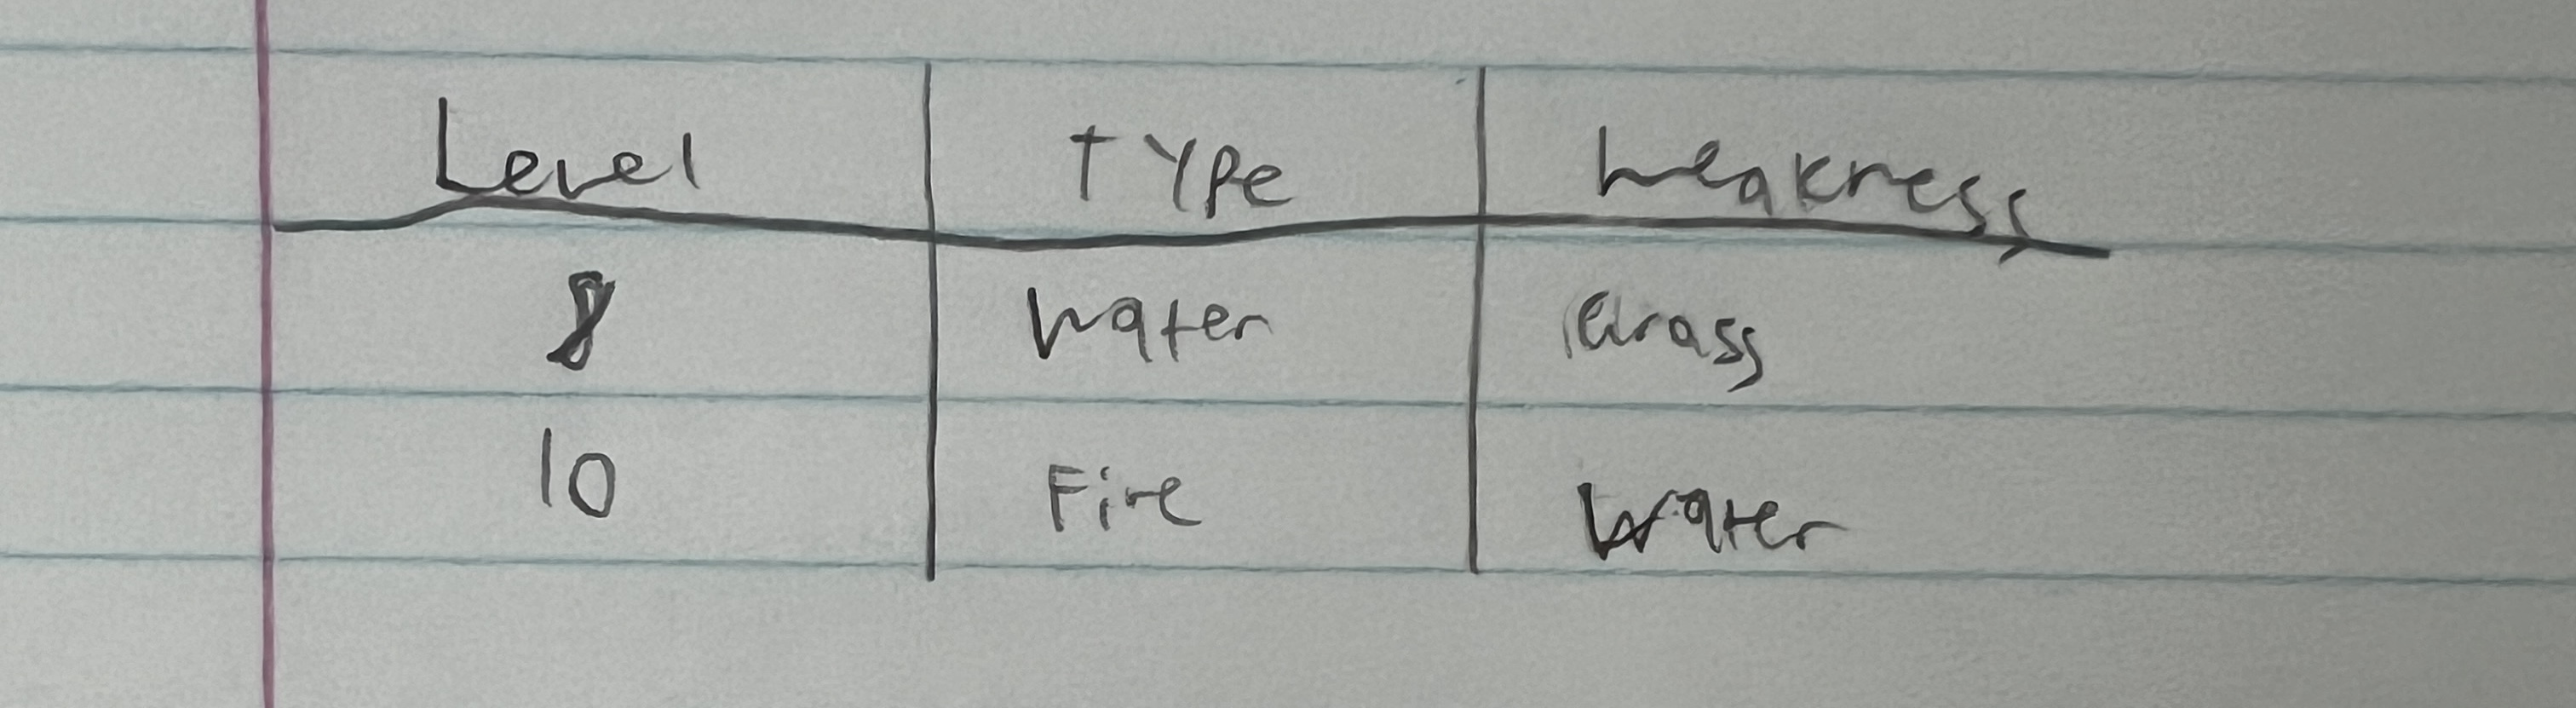 Level Type Weakness
8 Water Grass
10 Fire Water